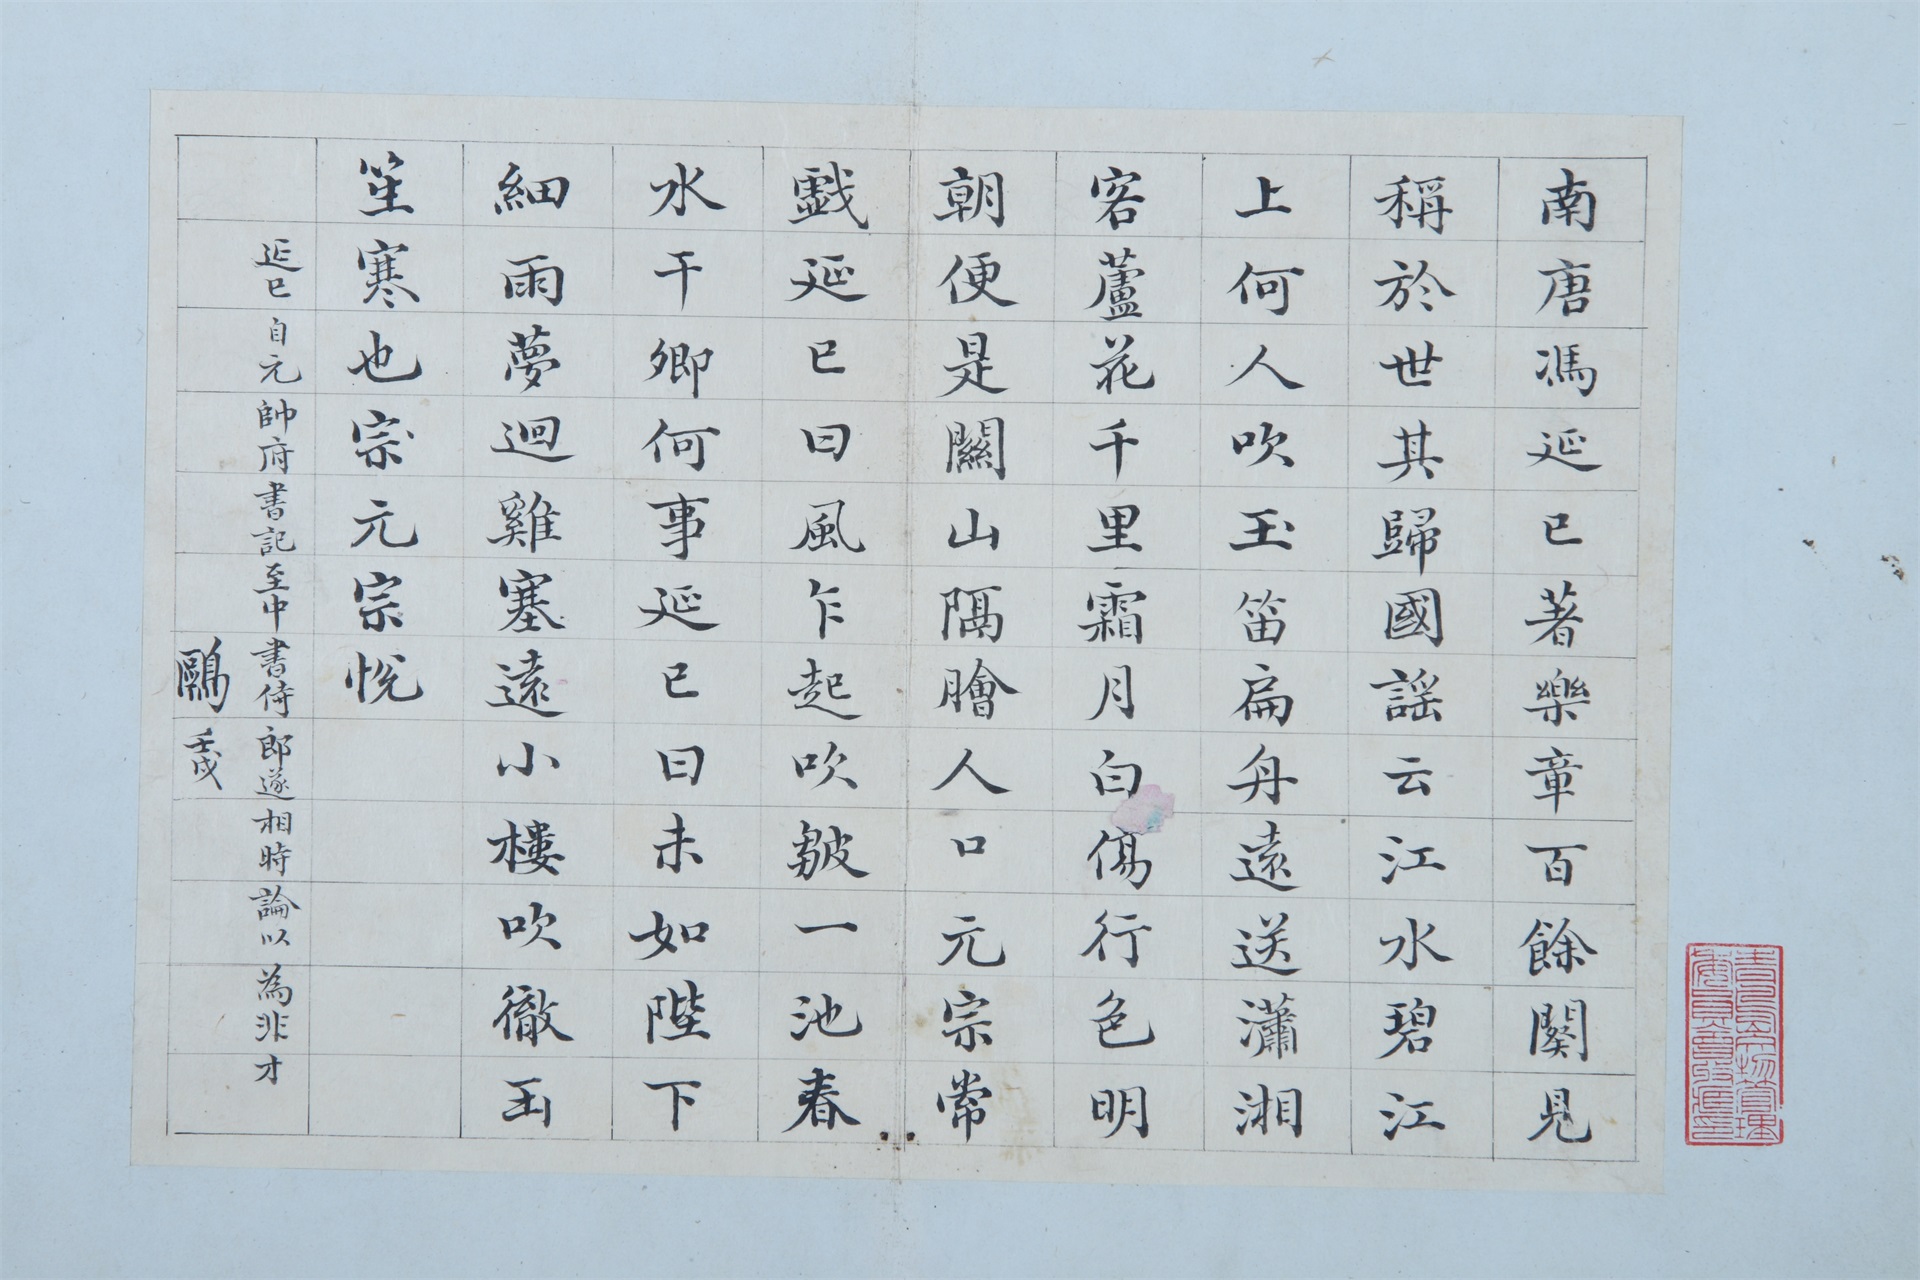 南唐馮延巳著樂章百餘闋見
稱於世其歸國謡云江水碧江
上何人吹玉笛扁舟遠送瀟湘
客蘆花千里霜月白傷行色明
朝便是關山隔膾人口元宗常
戲延巳曰風乍起吹皺一池春
水干卿何事延巳曰未如陛下
細雨夢迴雞塞遠小樓吹徹玉
笙寒也宗元宗悅
延巳自元帥府書記至中書侍郎遂相時論以為非才
鷗壬戌